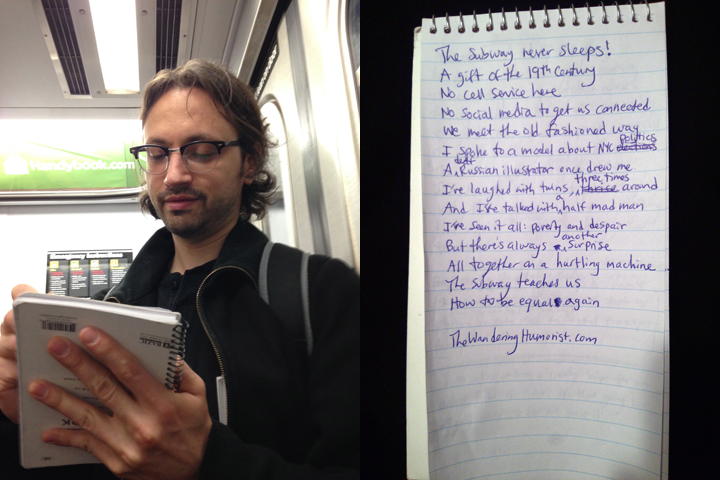 Handybook.com
The Subway never sleeps!
A gift of the 19th Century
No cell service here
No social media to get us connected
We meet the old fashioned way
I spoke to a model about NYC elections politics
A deaf Russian illustrator once drew me
I've laughed with twins, thrise three times around
And I've talked with a half mad man
I've seen it all: poverty and despair
But there's always a another surprise
All together on a hurtling machine
The Subway teaches us
How to be equal again
TheWanderingHumorist.com